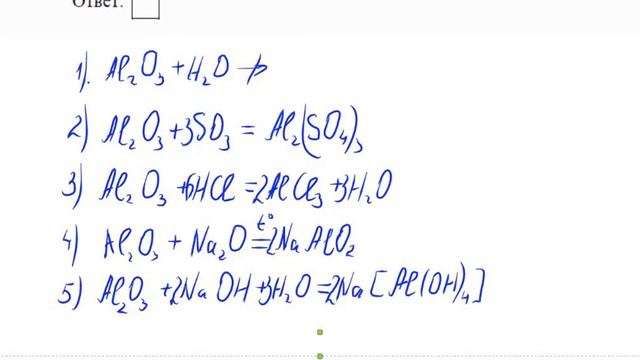 Ответ:
1). Al₂O₃ + H₂O ↛
2) Al₂O₃ + 3SO₃ = Al₂(SO₄)₃
3) Al₂O₃ + 6HCl = 2AlCl₃ + 3H₂O
4) Al₂O₃ + Na₂O =t° 2NaAlO₂
5) Al₂O₃ + 2NaOH + 3H₂O = 2Na[Al(OH)₄]